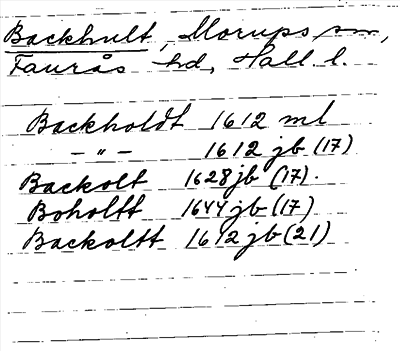 Backhult, Morups sn,
Faurås hd, Hall l.
Backholdt 1612 ml
- " - 1612 jb (17)
Backolt 1628 jb (17).
Boholtt 1644 jb (17)
Backoltt 1612 jb (21)